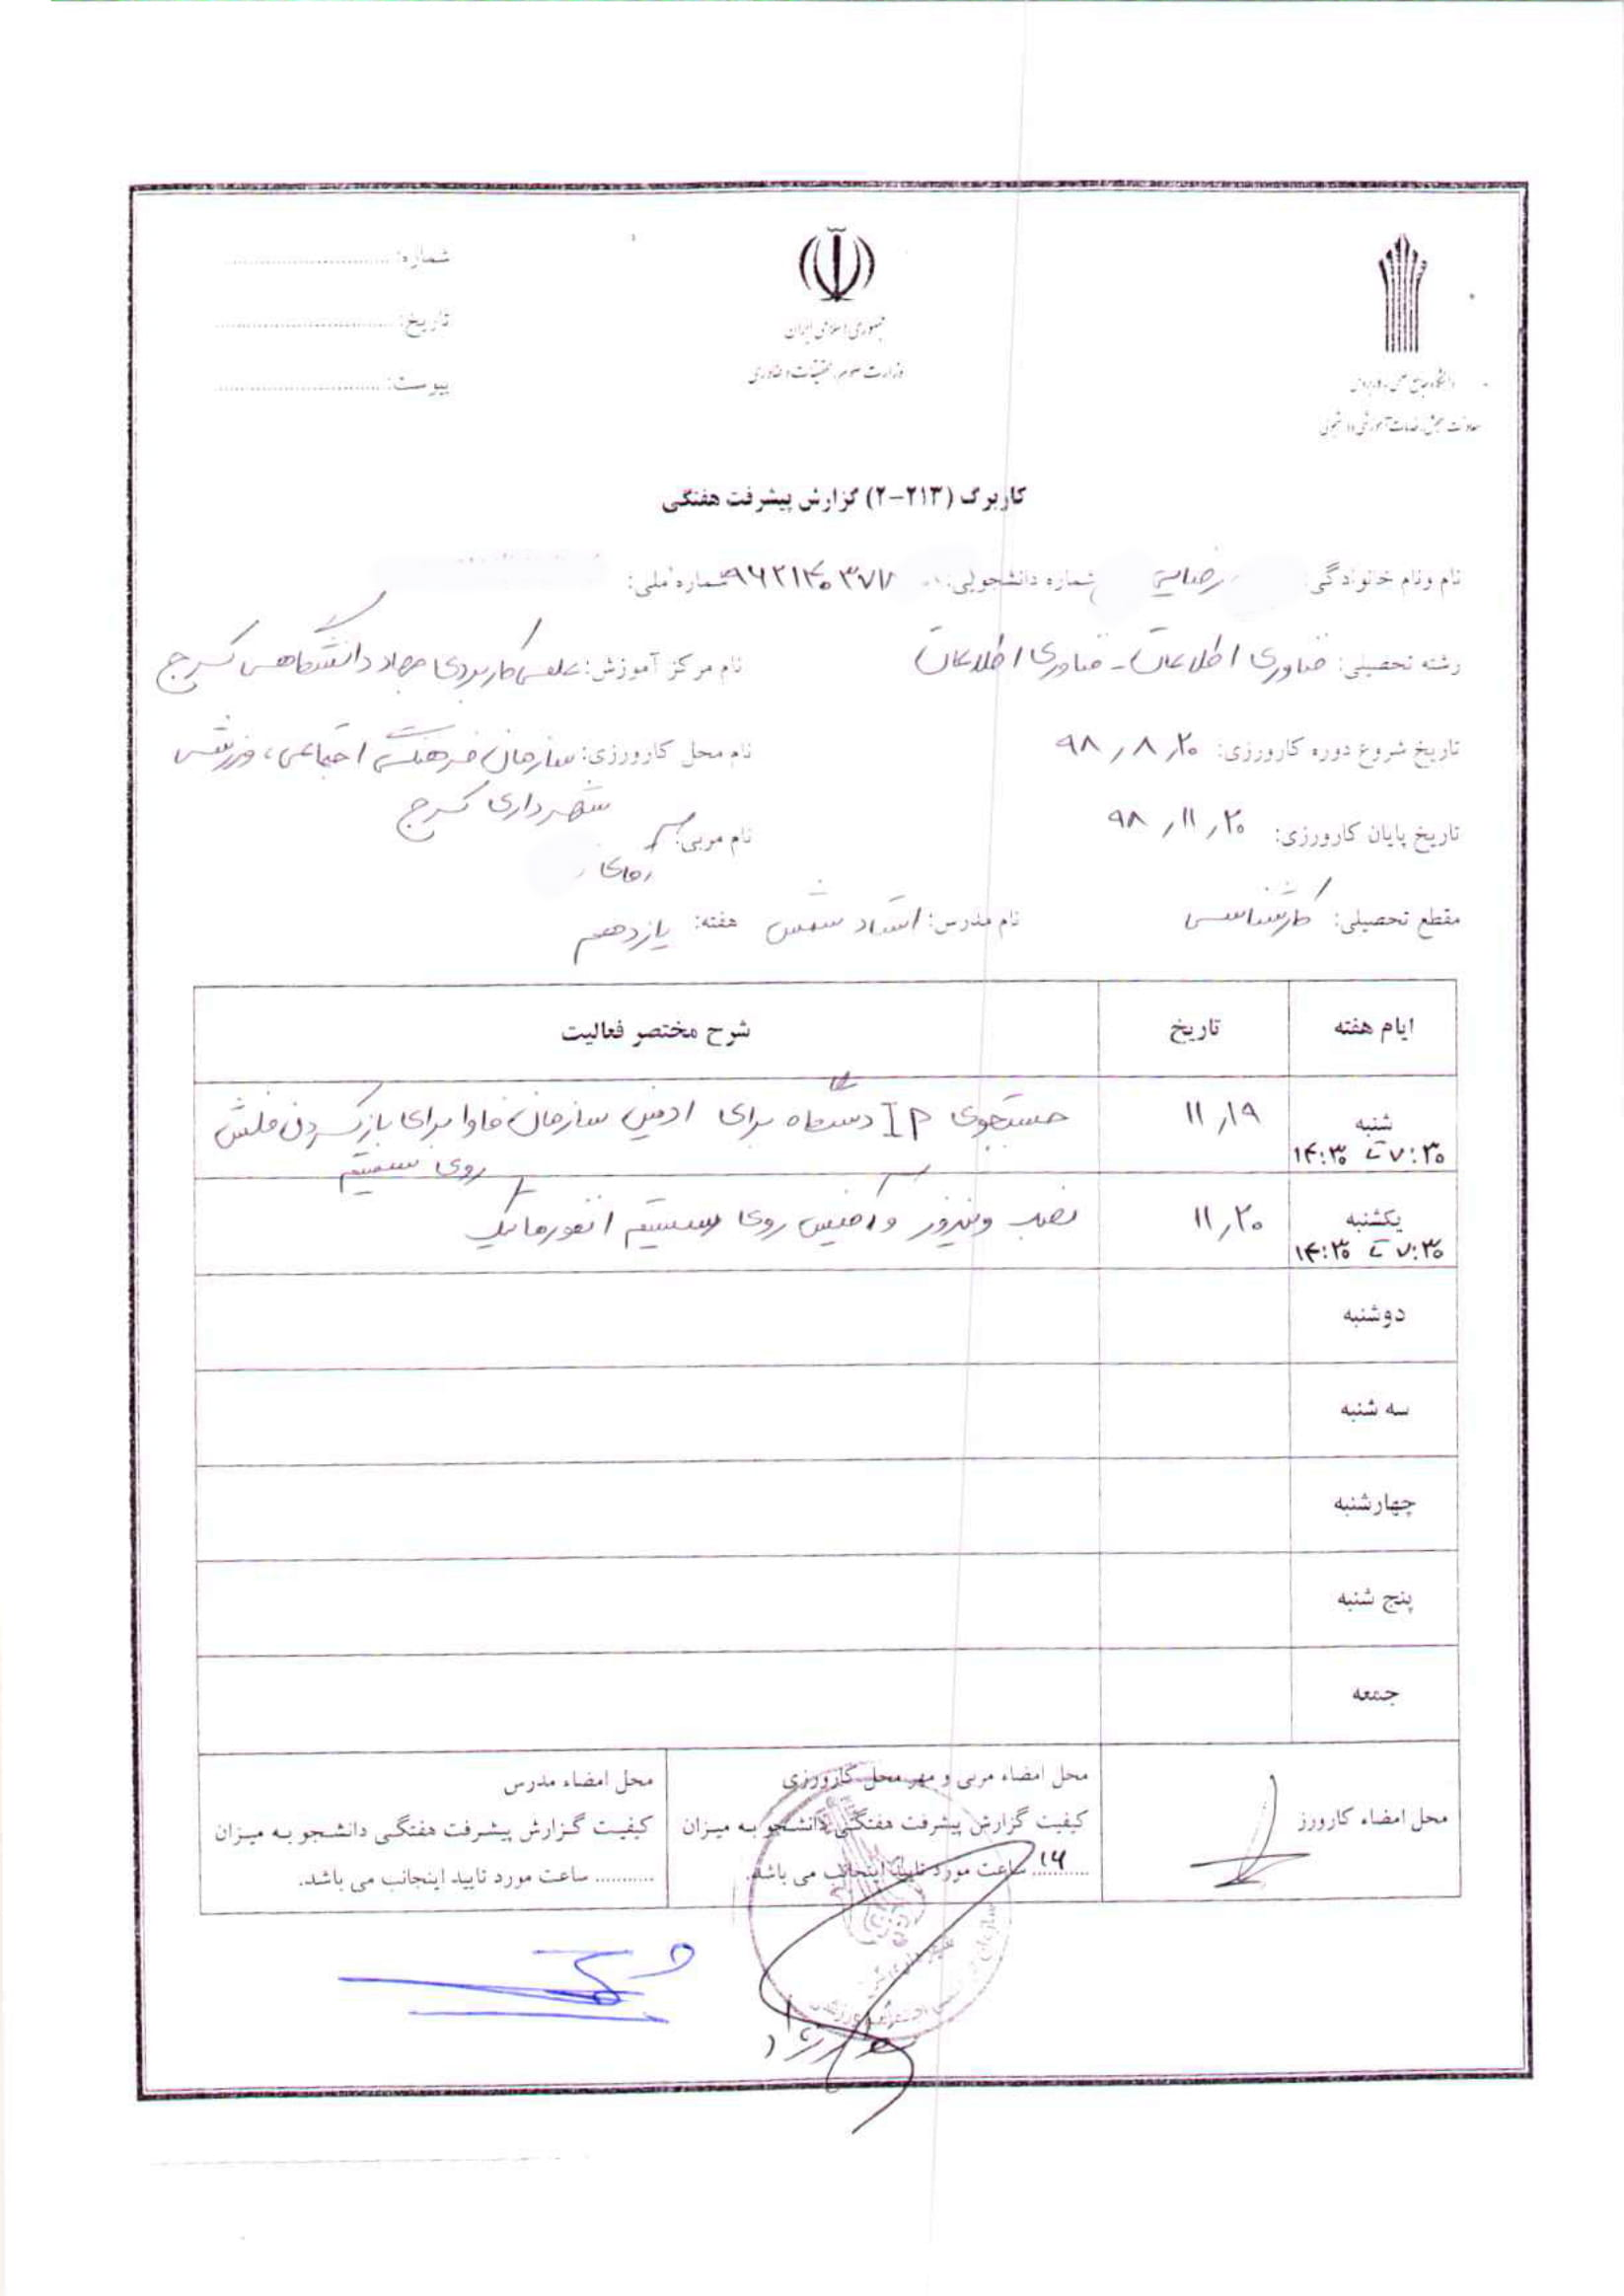 شماره: ..............................
تاریخ: ..............................
پیوست: ..............................
جمهوری اسلامی ایران
وزارت علوم، تحقیقات و فناوری
دانشگاه جامع علمی کاربردی
معاونت سنجش، خدمات آموزشی و دانشجویی
کاربرگ (۲۱۳-۲) گزارش پیشرفت هفتگی
نام ونام خانوادگی: رضایی شماره دانشجویی: شماره ملی:
رشته تحصیلی: فناوری اطلاعات - فناوری اطلاعات نام مرکز آموزش: علمی کاربردی جهاد دانشگاهی کرج
تاریخ شروع دوره کارورزی: ۹۸,۸,۲۰ نام محل کارورزی: سازمان فرهنگی اجتماعی، ورزشی
شهرداری کرج
تاریخ پایان کارورزی: ۹۸,۱۱,۲۰ نام مربی:
آقای
مقطع تحصیلی: کارشناسی نام مدرس: استاد شمس هفته: یازدهم
ایام هفته تاریخ شرح مختصر فعالیت
شنبه ۱۱,۱۹ جستجوی IP دستگاه برای ادمین سازمان فاوا برای باز کردن فلش
۷:۳۰ تا ۱۴:۳۰ روی سیستم
یکشنبه ۱۱,۲۰ نصب ویندوز و آفیس روی سیستم انفورماتیک
۷:۳۰ تا ۱۴:۳۰
دوشنبه
سه شنبه
چهارشنبه
پنج شنبه
جمعه
محل امضاء کارورز
محل امضاء مربی و مهر محل کارورزی
کیفیت گزارش پیشرفت هفتگی دانشجو به میزان
۱۴ ساعت مورد تایید اینجانب می باشد.
محل امضاء مدرس
کیفیت گزارش پیشرفت هفتگی دانشجو به میزان
........... ساعت مورد تایید اینجانب می باشد.